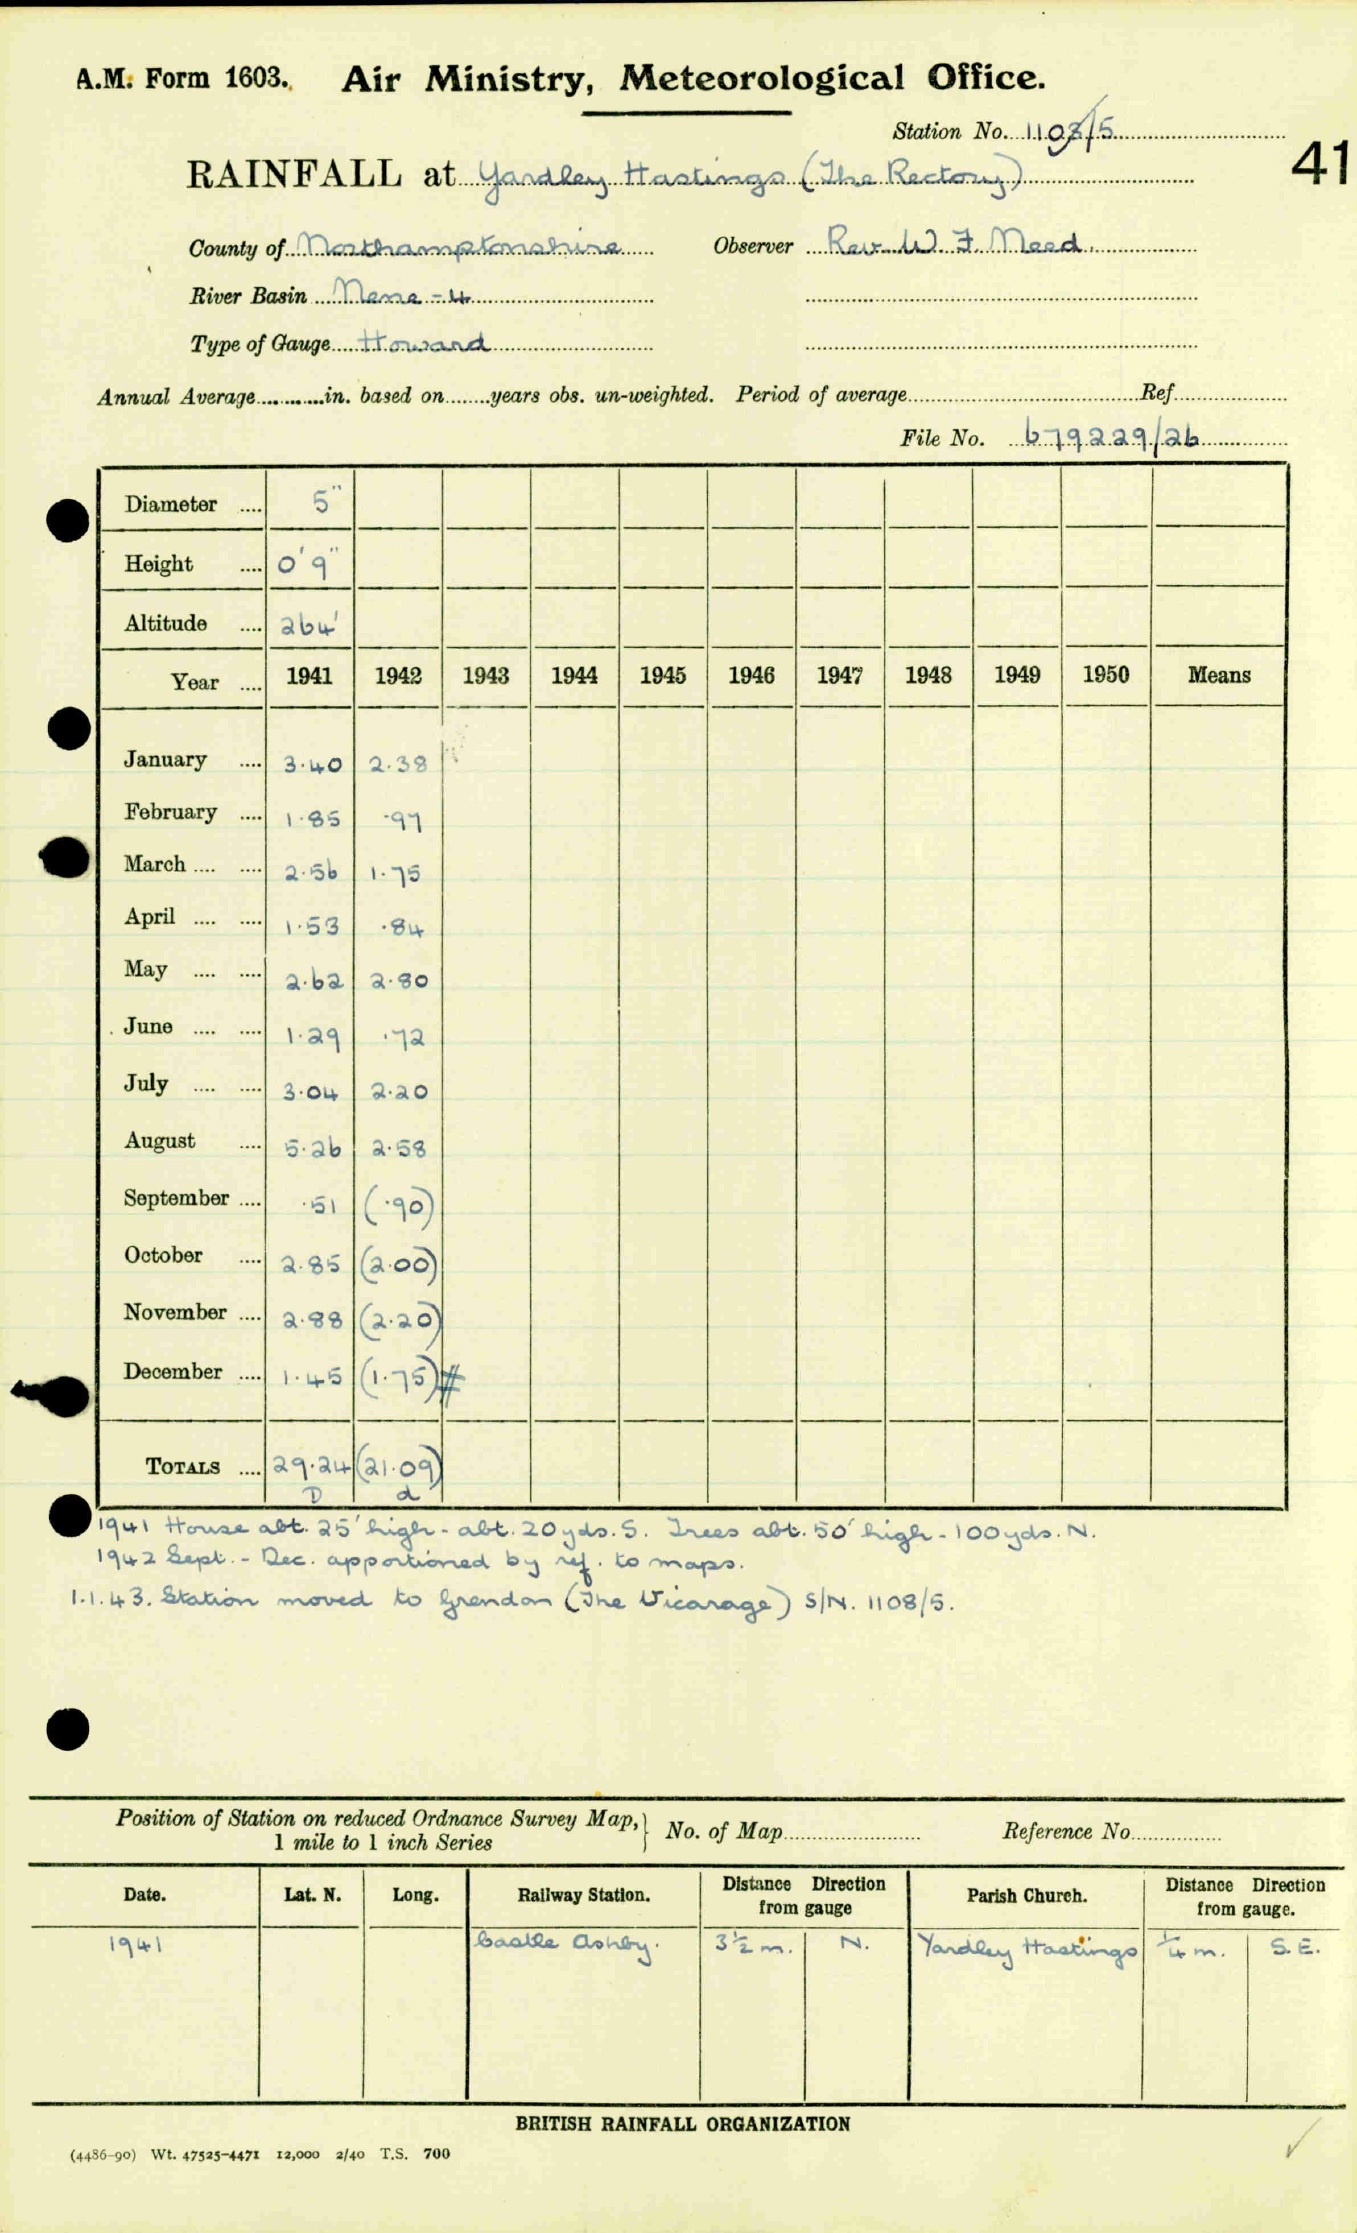 A.M. Form 1603. Air Ministry, Meteorological Office.
Station No. 1108/5
41
RAINFALL at Yardley Hastings (The Rectory)
County of Northamptonshire Observer Rev. W. F. Mead.
River Basin Nene - 4
Type of Gauge Howard
Annual Average ........... in. based on ........ years obs. un-weighted. Period of average ........ Ref ........
File No. 679229/26
Diameter .... 5"
Height .... 0' 9"
Altitude .... 264'
Year .... 1941 1942 1943 1944 1945 1946 1947 1948 1949 1950 Means
January .... 3.40 2.38
February .... 1.85 .97
March .... .... 2.56 1.75
April .... .... 1.53 .84
May .... .... 2.62 2.80
June .... .... 1.29 .72
July .... .... 3.04 2.20
August .... 5.26 2.58
September .... .51 (.90)
October .... 2.85 (2.00)
November .... 2.88 (2.20)
December .... 1.45 (1.75) #
TOTALS .... 29.24 (21.09)
D d
1941 House abt. 25' high - abt. 20 yds. S. Trees abt. 50' high - 100 yds. N.
1942 Sept. - Dec. apportioned by ref. to maps.
1.1.43. Station moved to Grendon (The Vicarage) S/N. 1108/5.
Position of Station on reduced Ordnance Survey Map, 1 mile to 1 inch Series } No. of Map ........ Reference No ........
Date. Lat. N. Long. Railway Station. Distance Direction from gauge Parish Church. Distance Direction from gauge.
1941 Castle Ashby. 3½ m. N. Yardley Hastings ¼ m. S.E.
BRITISH RAINFALL ORGANIZATION
(4486-90) Wt. 47525-4471 12,000 2/40 T.S. 700